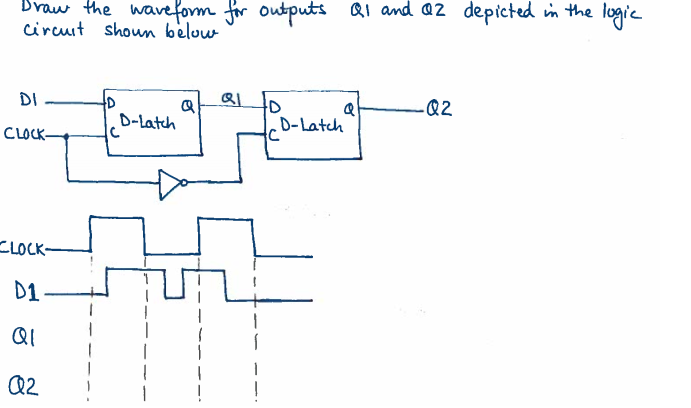 Draw the waveform for outputs Q1 and Q2 depicted in the logic
circuit shown below
D1
D
Q
Q1
D
Q
Q2
D-Latch
D-Latch
CLOCK
C
C
CLOCK
D1
Q1
Q2